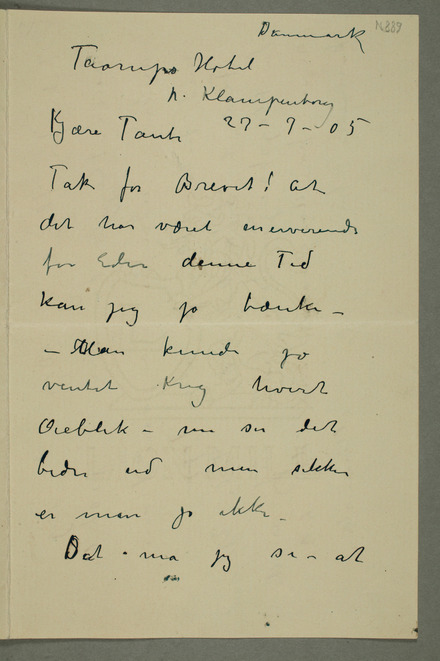 N889
Danmark
Taarnpæ Hotel
p. Klampenborg
Kjære Tante 27-9-05
Tak for Brevet! at
det har været enerverende
for Eder denne Tid
kan jeg jo tænke -
- Man kunde jo
ventet Krig hvert
Øieblik - nu ser det
bedre ud men sikker
er man jo ikke -
Det må jeg si - at